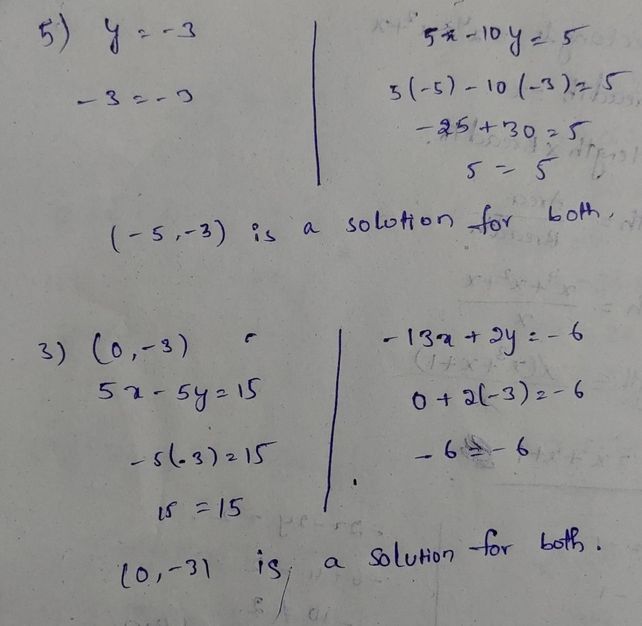 5) y = -3
-3 = -3
5x - 10y = 5
5(-5) - 10(-3) = 5
-25 + 30 = 5
5 = 5
(-5, -3) is a solution for both.
3) (0, -3)
5x - 5y = 15
-5(-3) = 15
15 = 15
-13x + 2y = -6
0 + 2(-3) = -6
-6 = -6
(0, -3) is a solution for both.